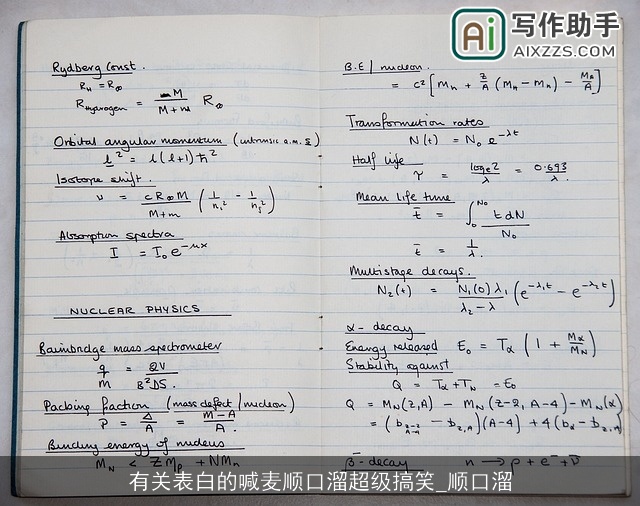 Ai 写作助手
AIXZZS.COM
Rydberg Const.
R_H = R_∞
R_Hydrogen = M/(M+m) R_∞
Orbital angular momentum (intrinsic a.m. s)
l² = l(l+1)ħ²
Isotope shift.
ν = cR_∞M/(M+m) (1/n₁² - 1/n_j²)
Absorption spectra
I = I₀e^(-μx)
NUCLEAR PHYSICS
Bainbridge mass spectrometer
q/m = QV/B²DS.
Packing fraction (mass defect/nucleon)
P = Δ/A = (M-A)/A.
Binding energy of nucleus
M_N < ZM_p + NM_n
B.E/nucleon.
= c²[M_n + Z/A (M_H - M_n) - M_A/A]
Transformation rates
N(t) = N₀ e^(-λt)
Half life
τ = log_e2/λ = 0.693/λ.
Mean life time
t̄ = ∫₀^(N₀) t dN/N₀
t̄ = 1/λ.
Multistage decays.
N₂(t) = N₁(0)λ₁/(λ₂-λ) (e^(-λ₁t) - e^(-λ₂t))
α-decay
Energy released E₀ = T_α (1 + M_α/M_N)
Stability against
Q = T_α + T_N = E₀
Q = M_N(Z,A) - M_N(Z-2, A-4) - M_N(α)
= (b_(Z-2,A-4) - b_(Z,A))(A-4) + 4(b_α - b_(Z,A))
β⁻-decay n → p + e⁻ + ν̄
有关表白的喊麦顺口溜超级搞笑_顺口溜